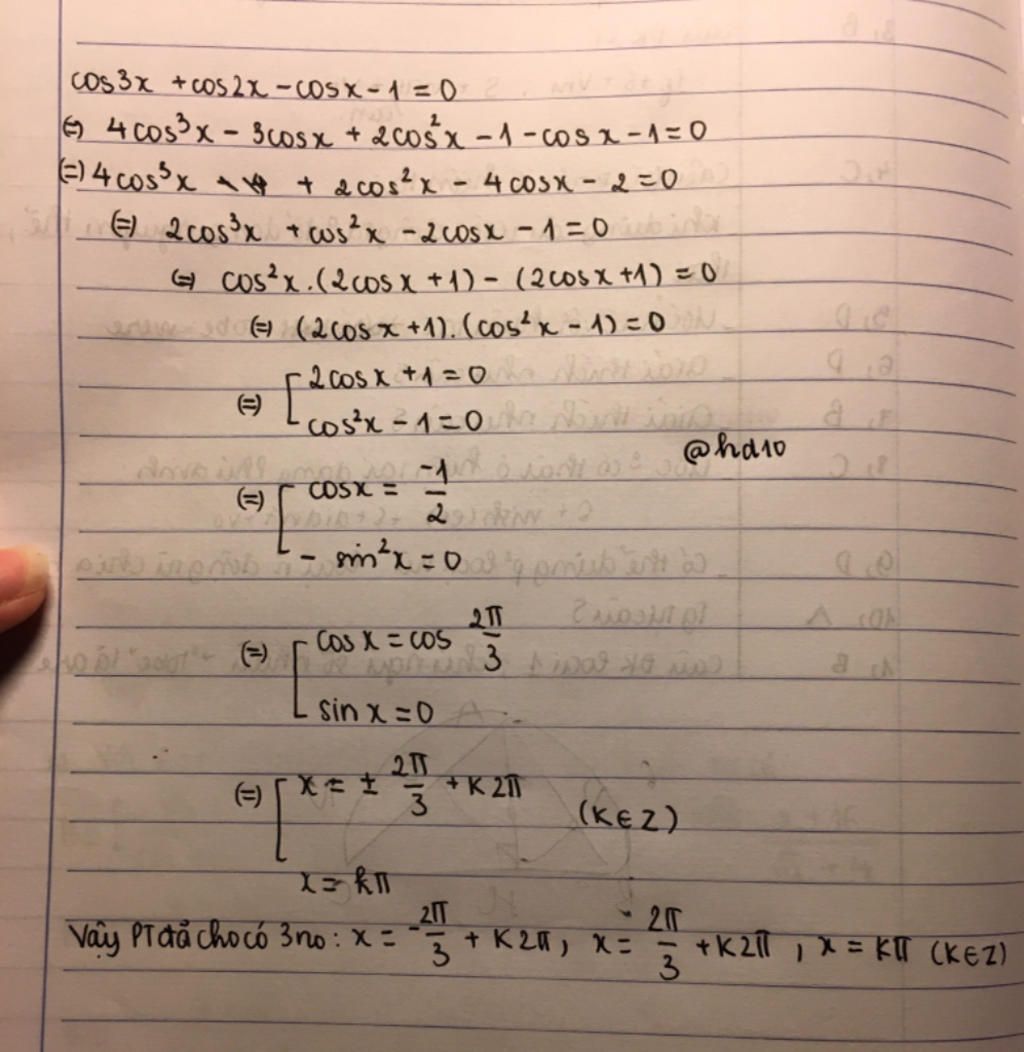 cos3x + cos2x - cosx - 1 = 0
(=) 4cos³x - 3cosx + 2cos²x - 1 - cosx - 1 = 0
(=) 4cos³x + 2cos²x - 4cosx - 2 = 0
(=) 2cos³x + cos²x - 2cosx - 1 = 0
(=) cos²x.(2cosx + 1) - (2cosx + 1) = 0
(=) (2cosx + 1).(cos²x - 1) = 0
(=) [ 2cosx + 1 = 0
cos²x - 1 = 0
@hd10
(=) [ cosx = -1/2
- sin²x = 0
(=) [ cosx = cos 2π/3
sinx = 0
(=) [ x = ± 2π/3 + K2π
(K∈Z)
x = kπ
Vậy PT đã cho có 3 no: x = -2π/3 + K2π, x = 2π/3 + K2π, x = Kπ (K∈Z)